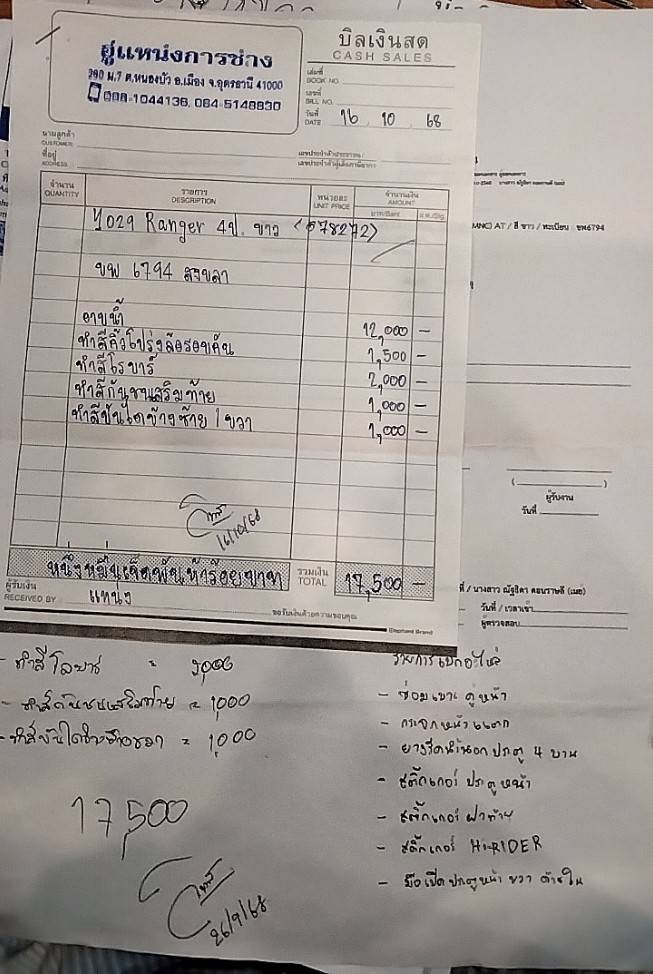 อู่แหน่งการช่าง
290 ม.7 ต.หนองบัว อ.เมือง จ.อุดรธานี 41000
088-1044136, 084-5148830
บิลเงินสด
CASH SALES
เล่มที่
BOOK NO.
เลขที่
BILL NO.
วันที่
DATE 16 10 68
นามลูกค้า
CUSTOMER
ที่อยู่
ADDRESS
จำนวน QUANTITY รายการ DESCRIPTION หน่วยละ UNIT PRICE จำนวนเงิน AMOUNT
Ranger 4ป. ขาว
ขพ 6794 สงขลา
อาบน้ำ 12,000 -
1,500 -
ทำสีโรบาร์ 2,000 -
ทำสีกันชนเสริมท้าย 1,000 -
ทำสีบันไดข้างซ้าย / ขวา 1,000 -
16/10/68
หนึ่งหมื่นเจ็ดพันห้าร้อยบาท รวมเงิน TOTAL 17,500 -
ผู้รับเงิน
RECEIVED BY แหน่ง
ขอรับเงินด้วยความขอบคุณ
Elephant Brand
MNC) AT / สี ขาว / ทะเบียน : ขพ6794
(                    )
ผู้รับงาน
วันที่
วันที่ / เวลา
ผู้ตรวจสอบ
- ทำสีโลบาร์ = 2,000
- ทำสีกันชนเสริมท้าย = 1000
= 1000
17,500
26/9/68
รายการเบิกอะไหล่
- กระจกหน้าแตก
- ยางรีดน้ำนอกประตู 4 บาน
- สติ๊กเกอร์ ประตูหน้า
- สติ๊กเกอร์ ฝาท้าย
- สติ๊กเกอร์ HI-RIDER
- มือเปิดประตูหน้า ขวา ด้านใน